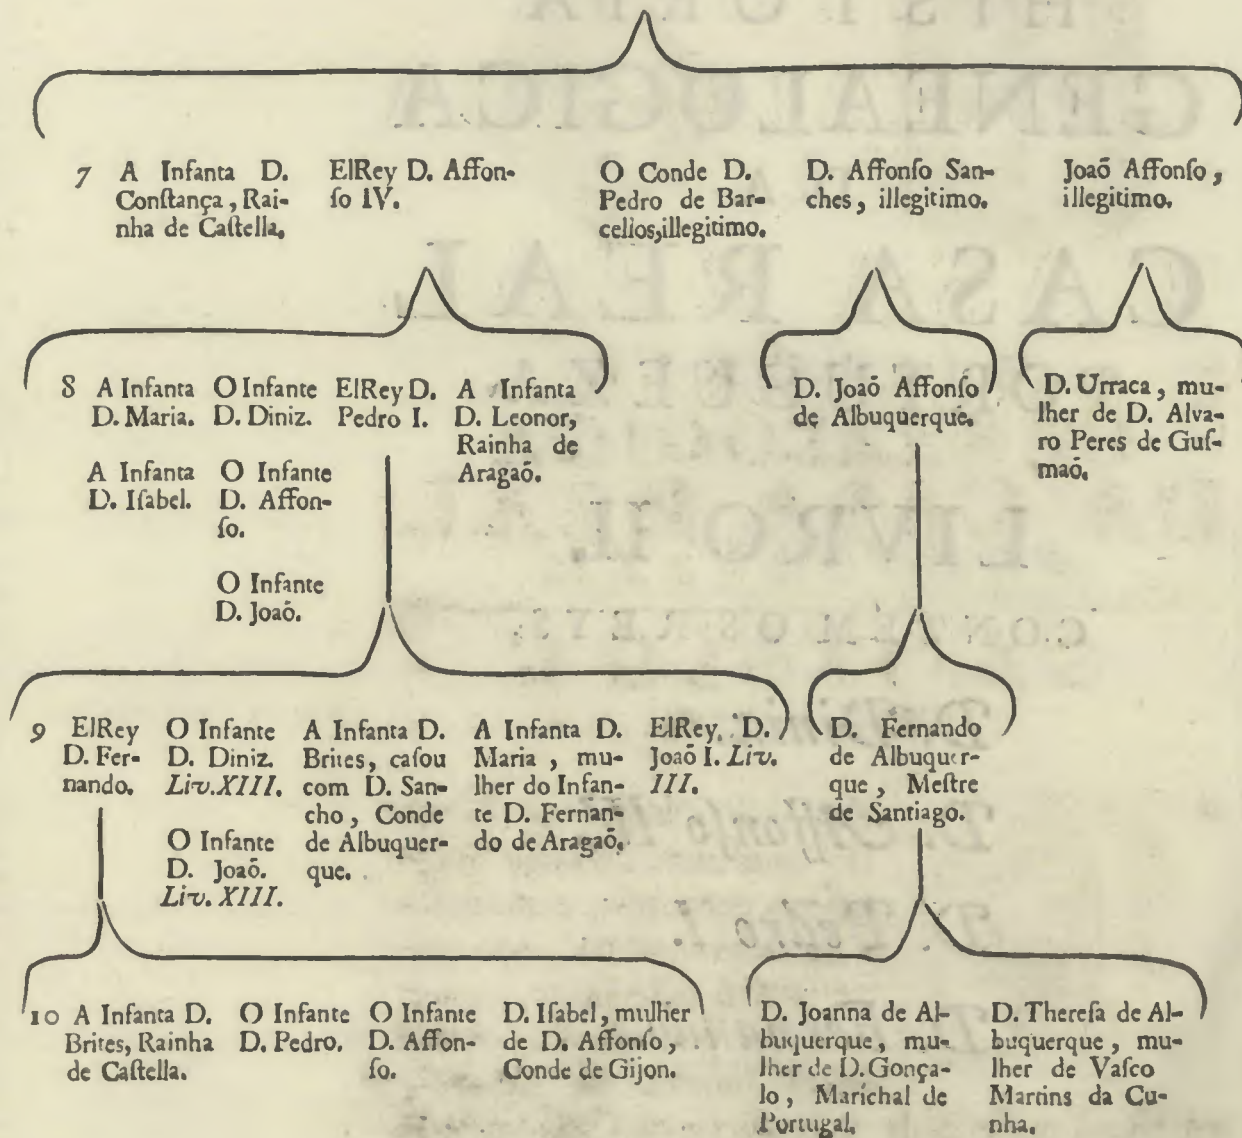 7 A Infanta D.
Conſtança, Rai-
nha de Caſtella.
ElRey D. Affon-
ſo IV.
O Conde D.
Pedro de Bar-
cellos, illegitimo.
D. Affonſo San-
ches, illegitimo.
Joaõ Affonſo,
illegitimo.
8 A Infanta
D. Maria.
A Infanta
D. Iſabel.
O Infante
D. Diniz.
O Infante
D. Affon-
ſo.
O Infante
D. Joaõ.
ElRey D.
Pedro I.
A Infanta
D. Leonor,
Rainha de
Aragaõ.
D. Joaõ Affonſo
de Albuquerque.
D. Urraca, mu-
lher de D. Alva-
ro Peres de Guſ-
maõ.
9 ElRey
D. Fer-
nando.
O Infante
D. Diniz.
Liv. XIII.
O Infante
D. Joaõ.
Liv. XIII.
A Infanta D.
Brites, caſou
com D. San-
cho, Conde
de Albuquer-
que.
A Infanta D.
Maria, mu-
lher do Infan-
te D. Fernan-
do de Aragaõ.
ElRey, D.
Joaõ I. Liv.
III.
D. Fernando
de Albuquer-
que, Meſtre
de Santiago.
10 A Infanta D.
Brites, Rainha
de Caſtella.
O Infante
D. Pedro.
O Infante
D. Affon-
ſo.
D. Iſabel, mulher
de D. Affonſo,
Conde de Gijon.
D. Joanna de Al-
buquerque, mu-
lher de D. Gonça-
lo, Marichal de
Portugal.
D. Thereſa de Al-
buquerque, mu-
lher de Vaſco
Martins da Cu-
nha.